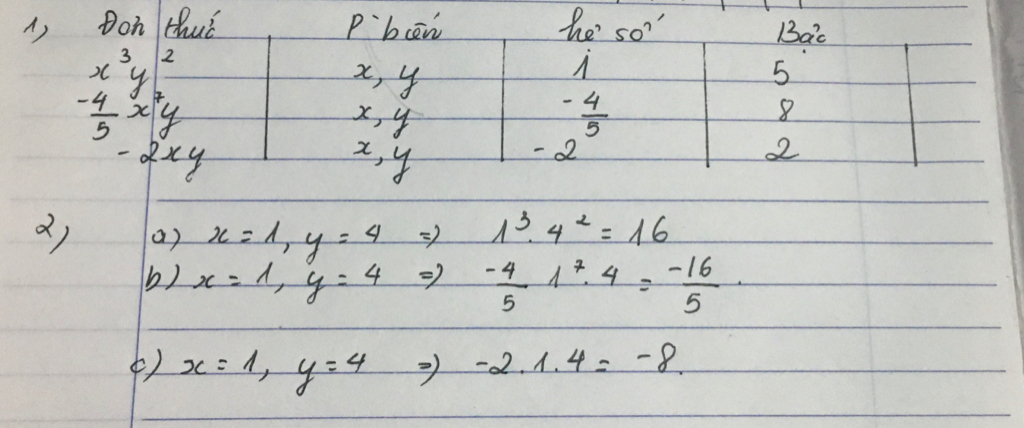 1, Đơn thức P biến hệ số Bậc
x³y² x, y 1 5
-4/5 x⁷y x, y -4/5 8
-2xy x, y -2 2
2, a) x = 1, y = 4 => 1³.4² = 16
b) x = 1, y = 4 => -4/5 1⁷.4 = -16/5.
c) x = 1, y = 4 => -2.1.4 = -8.